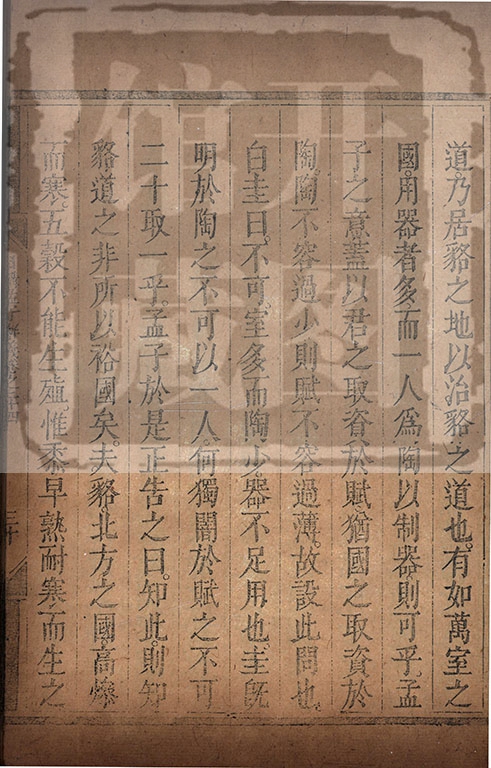 道。乃居貉之地以治貉之道也。有如萬室之
國。用器者多。而一人爲陶以制器。則可乎。孟
子之意。蓋以君之取資於賦。猶國之取資於
陶。陶不容過少。則賦不容過薄。故設此問也。
白圭曰。不可。室多而陶少。器不足用也。圭旣
明於陶之不可以一人。何獨闇於賦之不可
二十取一乎。孟子於是正告之曰。知此則知
貉道之非所以裕國矣。夫貉。北方之國。高燥
而寒。五穀不能生殖。惟黍早熟耐寒。而生之
三十